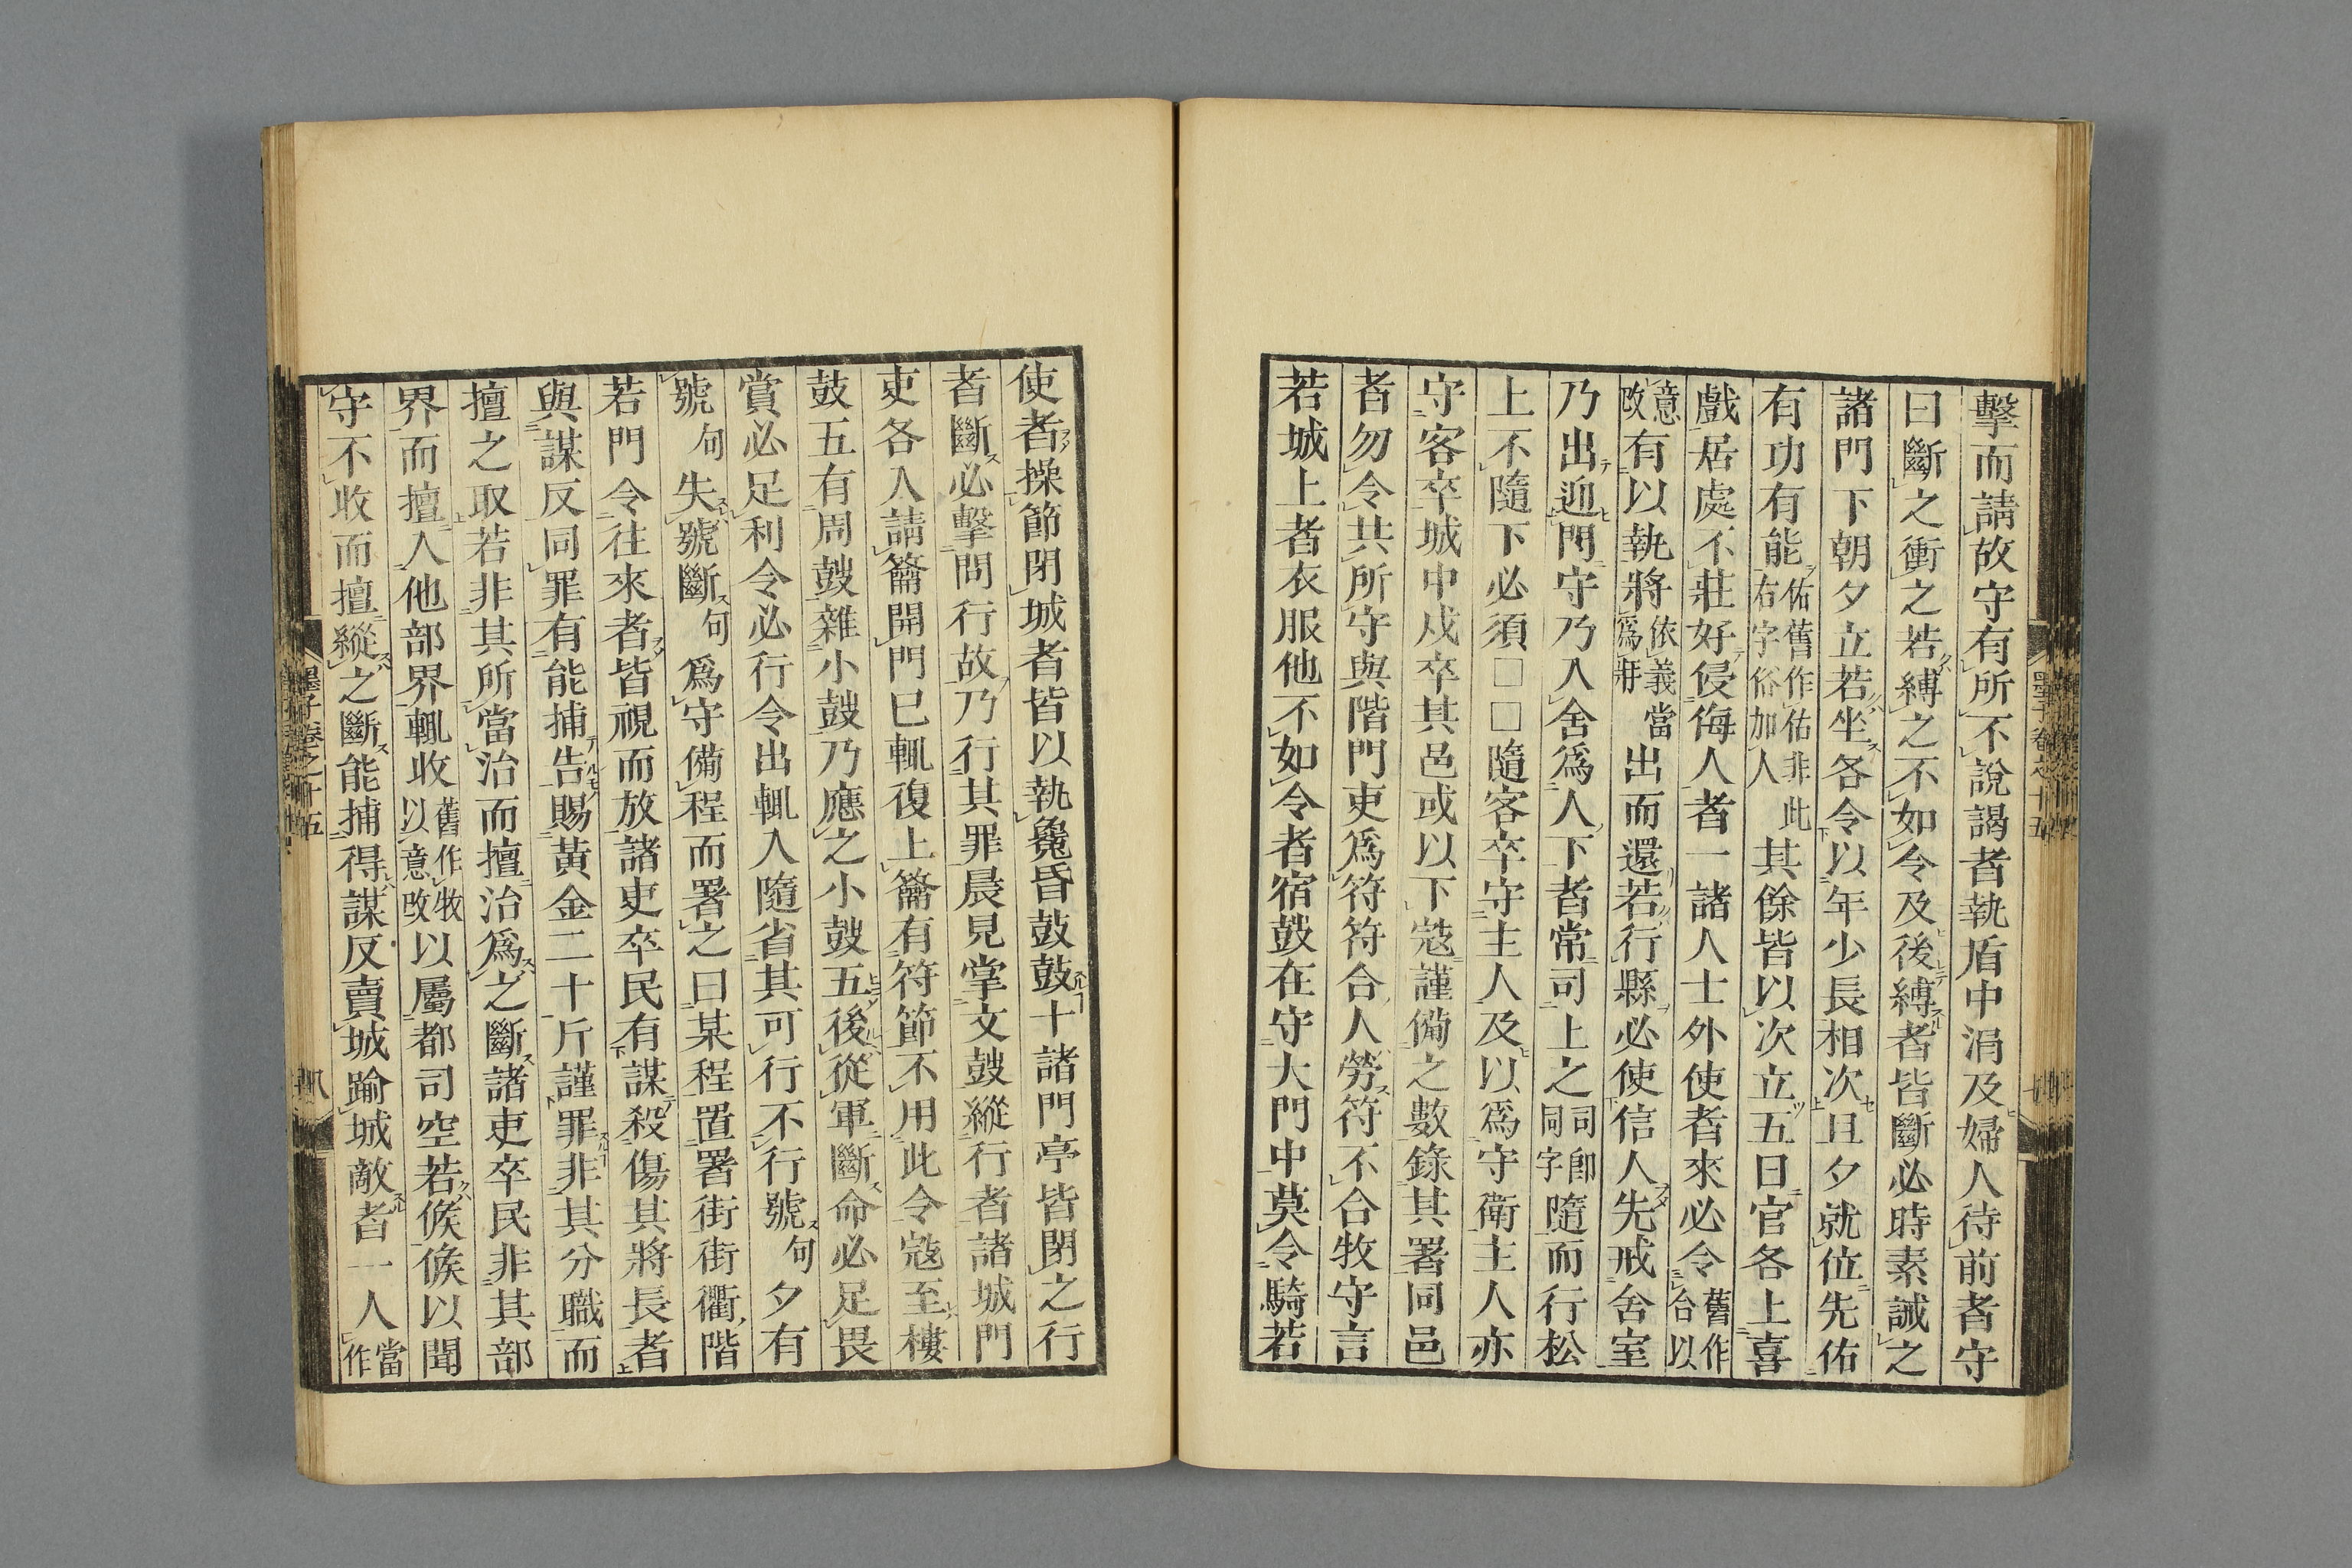 擊而請故守有所不說謁者執盾中涓及婦人待前者守
曰斷之衝之若縛之不如令及後縛者皆斷必時素誡之
諸門下朝夕立若坐各令以年少長相次旦夕就位先佑
有功有能佑舊作佑非此右字俗加人其餘皆以次立五日官各上喜
戲居處不莊好侵侮人者一諸人士外使者來必令舊作台以
意改有以執將依義當爲牂出而還若行縣必使信人先戒舍室
乃出迎門守乃入舍爲人下者常司上之司卽同字隨而行松
上不隨下必須□□隨客卒守主人及以爲守衛主人亦
守客卒城中戍卒其邑或以下寇謹備之數錄其署同邑
者勿令共所守與階門吏爲符符合人勞符不合牧守言
若城上者衣服他不如令者宿鼓在守大門中莫令騎若
使者操節閉城者皆以執毚昏鼓鼓十諸門亭皆閉之行
者斷必擊問行故乃行其罪晨見掌文鼓縱行者諸城門
吏各入請籥開門已輒復上籥有符節不用此令寇至樓
鼓五有周鼓雜小鼓乃應之小鼓五後從軍斷命必足畏
賞必足利令必行令出輒入隨省其可行不行號句夕有
號句失號斷句爲守備程而署之曰某程置署街街衢階
若門令往來者皆視而放諸吏卒民有謀殺傷其將長者
與謀反同罪有能捕告賜黃金二十斤謹罪非其分職而
擅之取若非其所當治而擅治爲之斷諸吏卒民非其部
界而擅入他部界輒收舊作牧以意改以屬都司空若候候以聞
守不收而擅縱之斷能捕得謀反賣城踰城敵者一人當作
墨子卷之十五
八